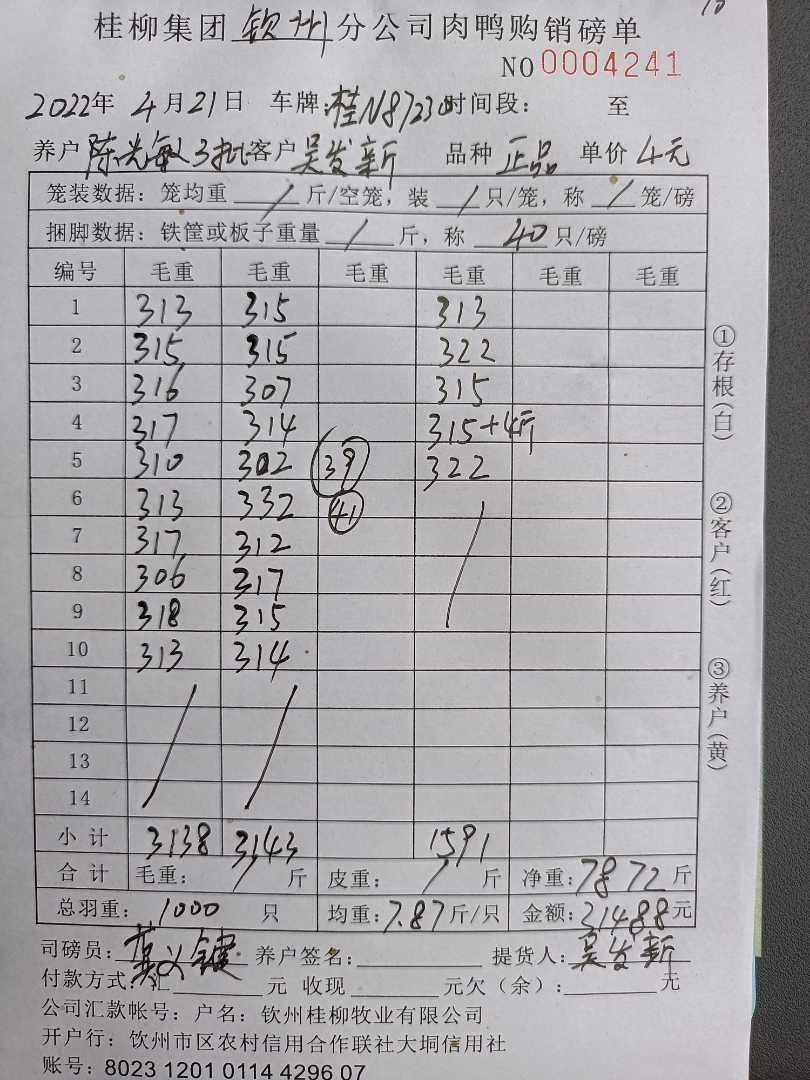 桂柳集团 钦州 分公司肉鸭购销磅单
NO 0004241
2022年 4月21日 车牌:桂N87230 时间段: 至
养户 陈光敏3批 客户 吴发新 品种 正品 单价 4元
笼装数据: 笼均重 / 斤/空笼, 装 / 只/笼, 称 / 笼/磅
捆脚数据: 铁筐或板子重量 / 斤, 称 40 只/磅
编号 毛重 毛重 毛重 毛重 毛重 毛重
1 313 315 313
2 315 315 322
3 316 307 315
4 317 314 315+4斤
5 310 302 39 322
6 313 332 41 /
7 317 312
8 306 317
9 318 315
10 313 314
11 / /
12
13
14
小计 3138 3143 1591
合计 毛重: / 斤 皮重: / 斤 净重: 7872 斤
总羽重: 1000 只 均重: 7.87 斤/只 金额: 31488 元
司磅员: 养户签名: 提货人: 吴发新
付款方式: 汇 元 收现 元欠(余): 元
公司汇款帐号: 户名: 钦州桂柳牧业有限公司
开户行: 钦州市区农村信用合作联社大垌信用社
账号: 8023 1201 0114 4296 07
①存根(白)
②客户(红)
③养户(黄)